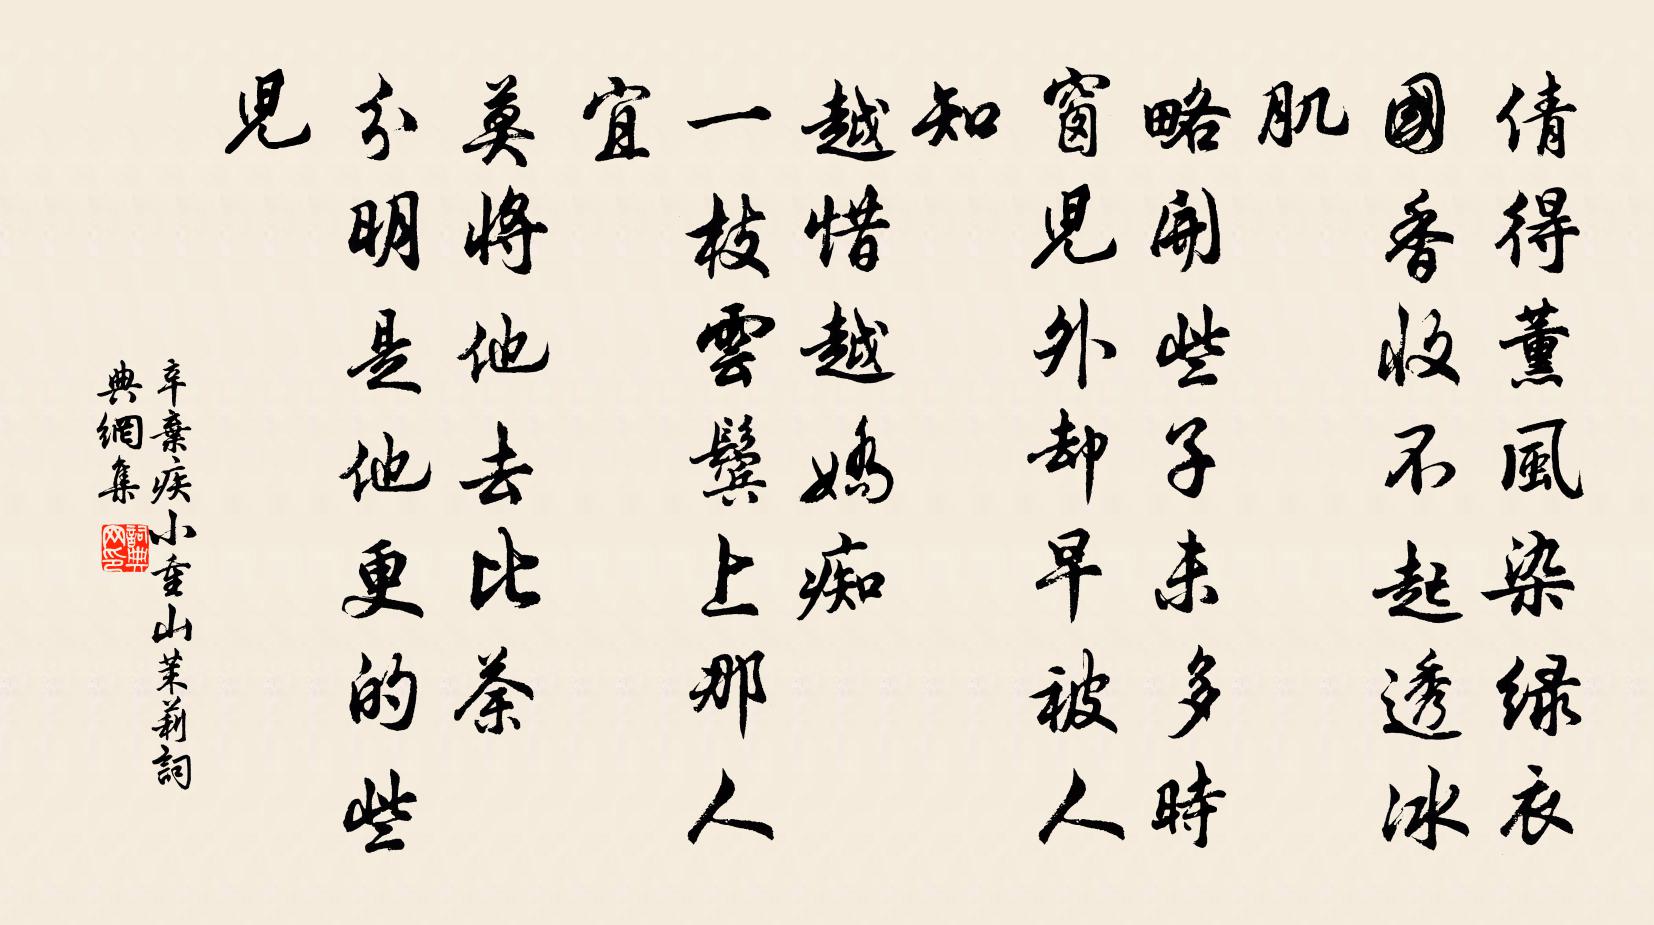 倩得薰風染綠衣
國香收不起透冰
肌
略開些子未多時
窗兒外卻早被人
知
越惜越嬌痴
一枝雲鬓上那人
宜
莫將他去比荼
分明是他更的些
兒
辛棄疾小重山茉莉詞
典網集
詞典網印